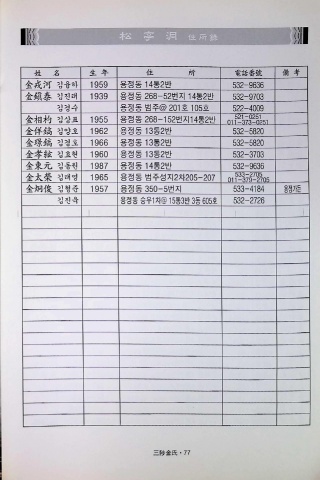 松亭洞 住所錄
姓 名 生 年 住 所 電話番號 備 考
金戎河 김융하 1959 용정동 14통2반 532-9636
金鎭泰 김진태 1939 용정동 268-52번지 14통2반 532-9703
김경수 용정동 범주@ 201호 105호 522-4009
金相杓 김상표 1955 용정동 268-152번지14통2반 521-0251 011-373-0251
金佯鎬 김양호 1962 용정동 13통2반 532-5820
金璟鎬 김경호 1966 용정동 13통2반 532-5820
金孝鉉 김효현 1960 용정동 13통2반 532-3703
金東元 김동원 1987 용정동 14통2반 532-9636
金太榮 김태영 1965 용정동 범주성지2차205-207 533-2705 011-379-2705
金炯俊 김형준 1957 용정동 350-5번지 533-4184
김진욱 용정동 승우1차@ 15통3반 3동 605호 532-2726
三陟金氏・77